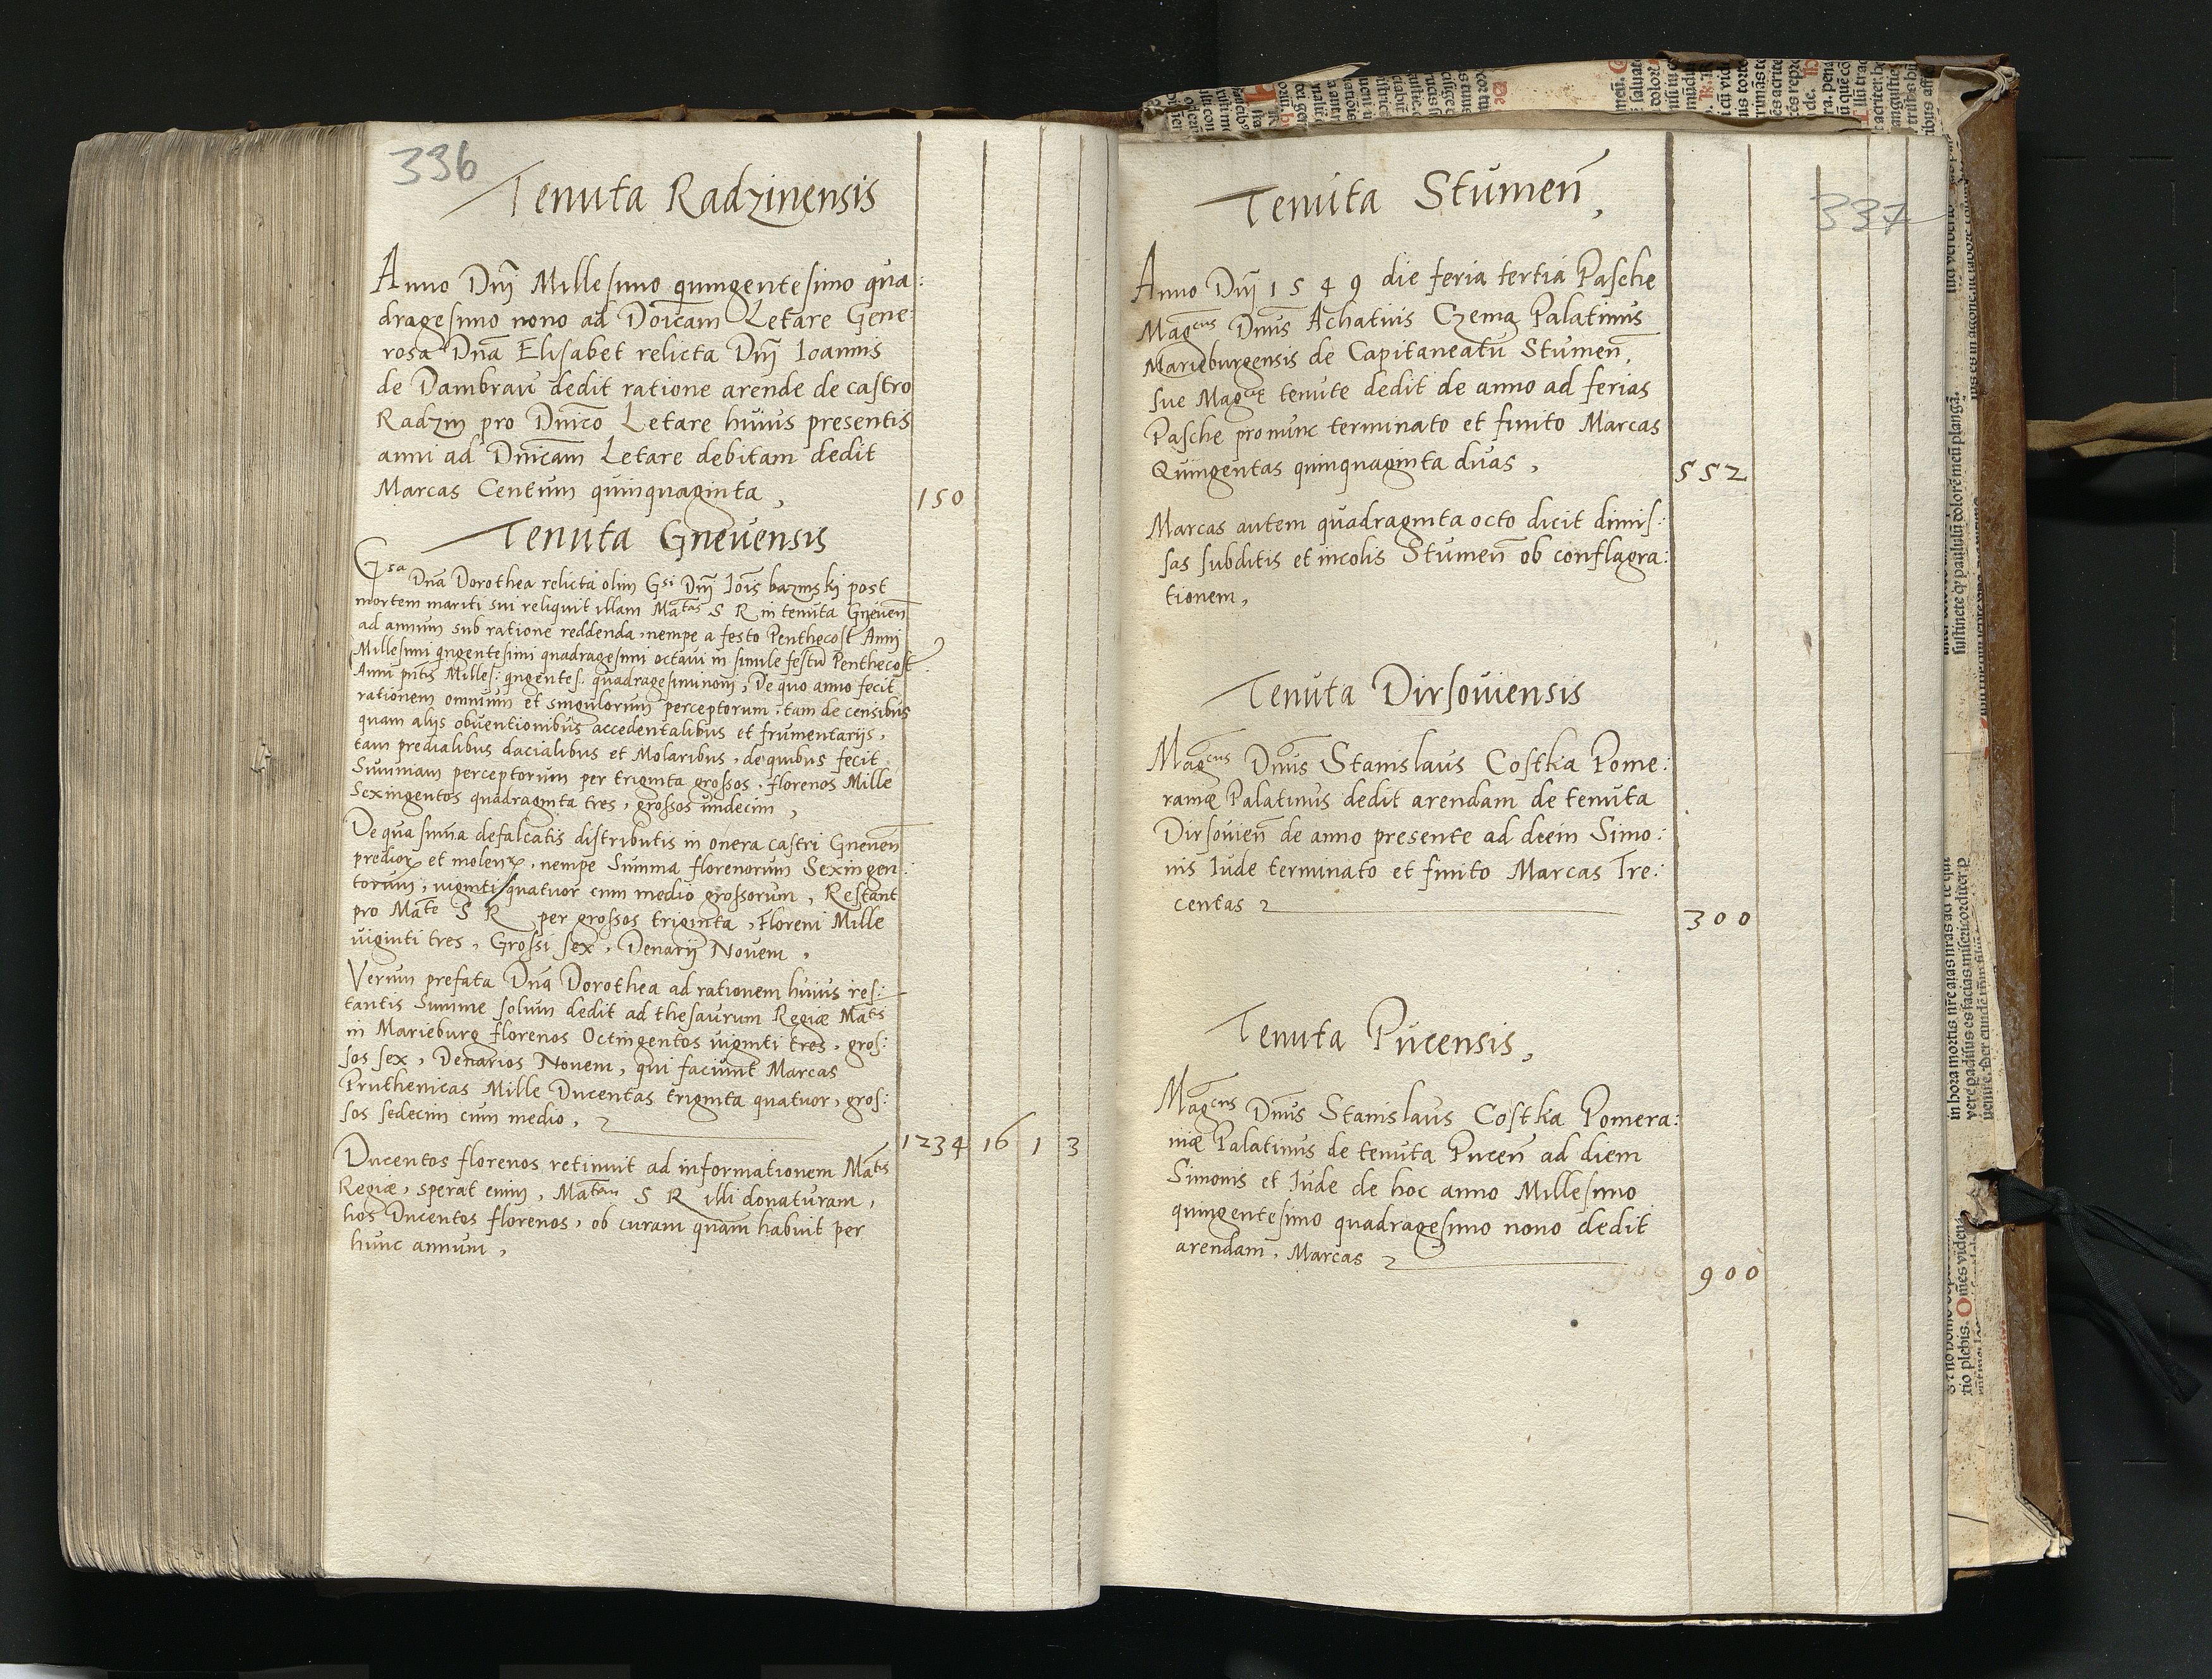 336
Tenuta Radzinensis
Anno Dnj Millesimo quingentesimo qua:
dragesimo nono ad Doicam Letare Gene:
rosa Dna Elisabet relicta Dnj Ioannis
de Dambrau dedit ratione arende de castro
Radzin pro Dnico Letare huius presentis
anni ad Dnicam Letare debitam dedit
Marcas Centum quinquaginta,
150
Tenuta Gneuensis
Gsa Dna Dorothea relicta olim Gsi Dnj Iois bazinskj post
mortem mariti sui reliquit illam Matas S R in tenuta Gneuen
ad annum sub ratione reddenda, nempe a festo Penthecost Anni
Millesimi qngentesimi quadragesimi octaui in simile festu Penthecost
Anni pntis Milles: qngentes. quadragesiminoni, De quo anno fecit
rationem omnium et singulorum perceptorum, tam de censibus
quam alijs obuentionibus accedentalibus et frumentarijs,
tam predialibus dacialibus et Molaribus, de quibus fecit
Summam perceptorum per triginta grossos, florenos Mille
Sexingentos quadraginta tres, grossos undecim,
De qua suma defalcatis distributis in onera castri Gneuen
predior et molenr, nempe Summa florenorum Sexingen:
torum, uiginti quatuor cum medio grossorum, Restant
pro Mate S R per grossos triginta, Floreni Mille
uiginti tres, Grossi sex, Denarij Novem,
Verum prefata Dna Dorothea ad rationem huius res:
tantis Summe solum dedit ad thesaurum Regiæ Matis
in Marieburg florenos Octingentos uiginti tres, gros:
sos sex, Denarios Novem, qui faciunt Marcas
Pruthenicas Mille Ducentas triginta quatuor, gros:
sos sedecim cum medio,
1234 16 1 3
Ducentos florenos retinuit ad informationem Matis
Regiæ, sperat enim, Matem S R illi donaturam,
hos Ducentos florenos, ob curam quam habuit per
hunc annum,
337
Tenuta Stumen,
Anno Dnj 1549 die feria tertia Pasche
Magcus Dnus Achatius Czema Palatinus
Marieburgensis de Capitaneatu Stumen,
sue Magcæ tenute dedit de anno ad ferias
Pasche pro nunc terminato et finito Marcas
Quingentas quinquaginta duas,
552
Marcas autem quadraginta octo dicit dimis:
sas subditis et incolis Stumen ob conflagra:
tionem,
Tenuta Dirsouiensis
Magcus Dnus Stanislaus Costka Pome:
raniæ Palatinus dedit arendam de tenuta
Dirsouien de anno presente ad diem Simo:
nis Iude terminato et finito Marcas Tre:
centas
300
Tenuta Pucensis,
Magcus Dnus Stanislaus Costka Pomera:
niæ Palatinus de tenuta Pucen ad diem
Simonis et Iude de hoc anno Millesimo
quingentesimo quadragesimo nono dedit
arendam, Marcas
900